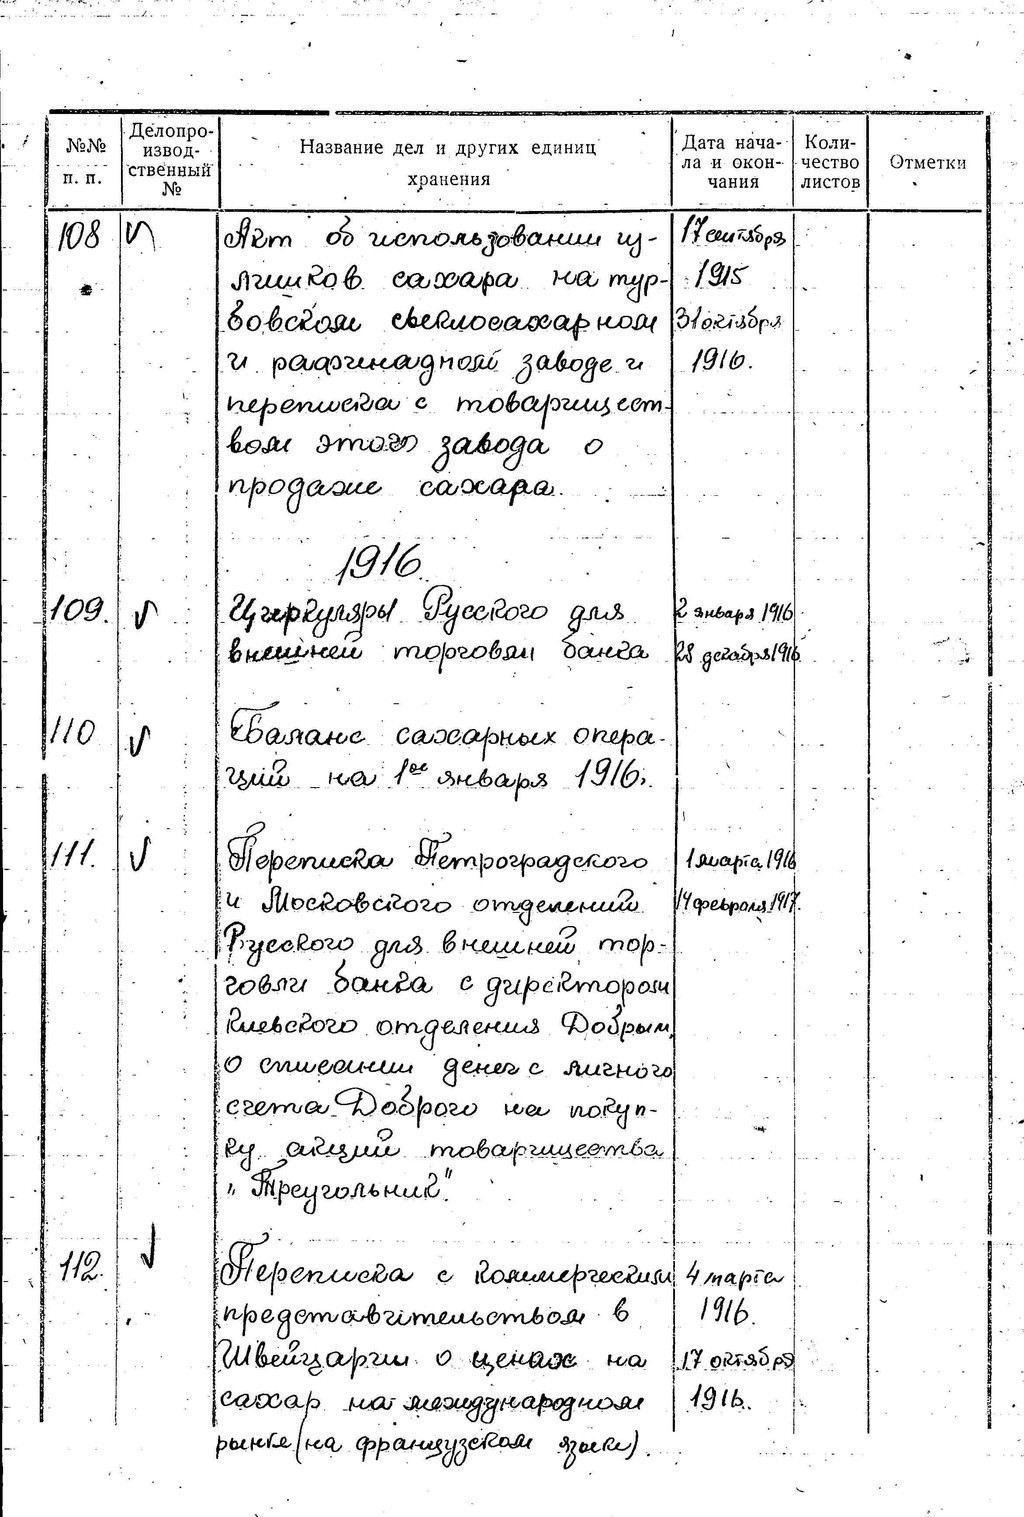 №№ п. п.
Делопро-
извод-
ственный
№
Название дел и других единиц
хранения
Дата нача-
ла и окон-
чания
Коли-
чество
листов
Отметки
108 Акт об использовании из- 17 сентября
лишков сахара на тур- 1915
бовском свеклосахарном 31 октября
и рафинадном заводе и 1916.
переписка с товарищест-
вом этого завода о
продаже сахара.
1916
109. Циркуляры Русского для 2 января 1916
внешней торговли банка 28 декабря 1916
110 Баланс сахарных опера-
ций на 1ое января 1916г.
111. Переписка Петроградского 1 марта 1916
и Московского отделений 14 февраля 1917.
Русского для внешней тор-
говли банка с директором
киевского отделения Добрым
о списании денег с личного
счета Доброго на покуп-
ку акций товарищества
„Треугольник".
112. Переписка с коммерческим 4 марта
представительством в 1916.
Швейцарии о ценах на 17 октября
сахар на международном 1916.
рынке (на французском языке).